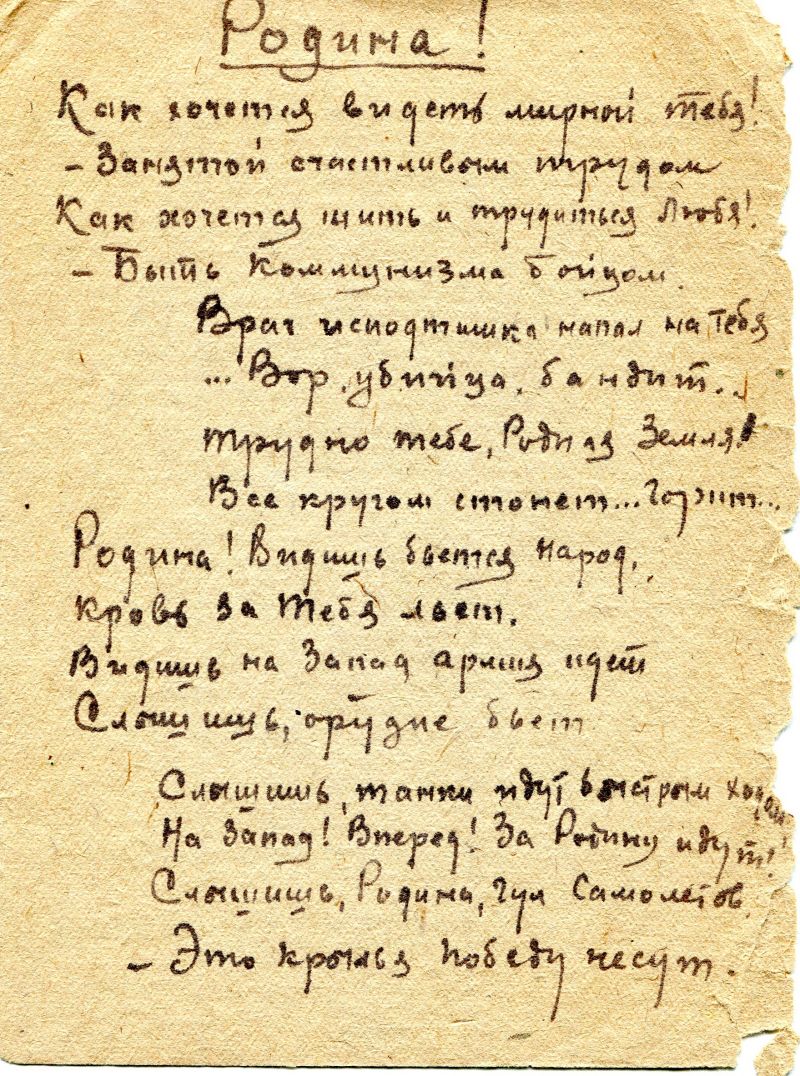 Родина!
Как хочется видеть мирной тебя!
- Занятой счастливым трудом
Как хочется жить и трудиться любя!
- Быть Коммунизма бойцом.
Враг исподтишка напал на Тебя
... Вор, убийца, бандит..
Трудно тебе, Родная Земля!
Все кругом стонет... Горит...
Родина! Видишь бьется народ,
кровь за Тебя льет.
Видишь на Запад армия идет
Слышишь, орудие бьет
Слышишь, танки идут быстрым ходом
На Запад! Вперед! За Родину идут!
Слышишь, Родина, гул Самолетов
- Это крылья победу несут.